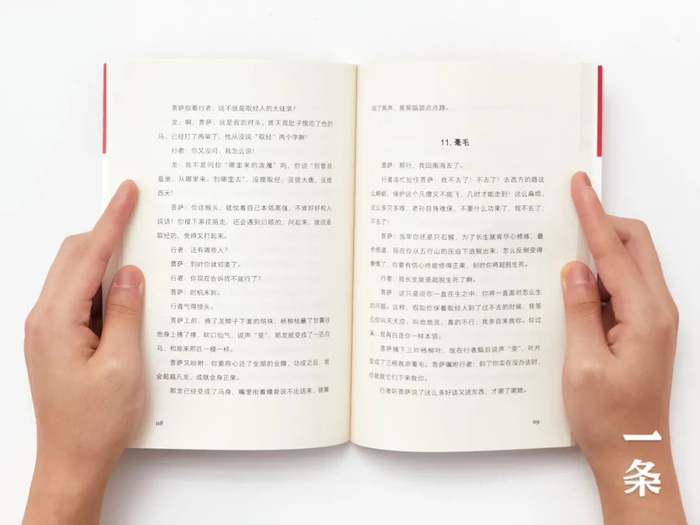 菩萨指着行者:这不就是取经人的大徒弟?
龙:啊,菩萨,这是我的对头,昨天我肚子饿吃了他的
马,已经打了两架了,他从没说“取经”两个字啊!
行者:你又没问,我怎么说!
龙:我不是问你“哪里来的泼魔”吗,你说“别管我
是谁,从哪里来,到哪里去”,没提取经,没提大唐,没提
西天!
菩萨:你这猴头,就仗着自己本领高强,不肯好好和人
说话!你接下来往前走,还会遇到归顺的,问起来,就说是
取经的,免得又打起来。
行者:还有哪些人?
菩萨:到时你就知道了。
行者:你现在告诉我不就行了?
菩萨:时机未到。
行者气得挠头。
菩萨上前,摘了龙脖子下面的明珠,杨柳枝蘸了甘露往
他身上拂了拂,吹口仙气,说声“变”,那龙就变成了一匹白
马,和原来那匹一模一样。
菩萨又吩咐:你要用心还了全部的业障,功成之后,就
会超越凡龙,成就金身正果。
那龙已经变成了马身,嘴里衔着横骨说不出话来,就嘶
118
鸣了两声,晃晃脑袋点点蹄。
11. 毫毛
菩萨:那行,我回南海去了。
行者连忙扯住菩萨:我不去了!不去了!去西方的路这
么崎岖,保护这个凡僧又不能飞,几时才能走到!这么麻烦,
这么多灾多难,老孙自身难保,不要什么功果了,我不去了,
不去了!
菩萨:当年你还是只石猴,为了长生就肯尽心修炼,最
终悟道,现在你从五行山的压迫下逃脱出来,怎么反倒变得
懒惰了,你要有信心终能修得正果,到时你将超脱生死。
行者:我长生就是超脱生死了啊。
菩萨:这只是说你一直在生之中,你将一直面对怎么生
的问题。这样,假如你保着取经人到了过不去的时候,我答
应你叫天天应,叫地地灵,真的不行,我亲自来救你。你过
来,我再白送你一样本领。
菩萨摘下三片杨柳叶,放在行者脑后说声“变”,叶片
变成了三根救命毫毛。菩萨嘱咐行者:到了你实在没办法时,
你就拔它们下来救你。
行者听菩萨说了这么多好话又送东西,才谢了谢她。
119
一条